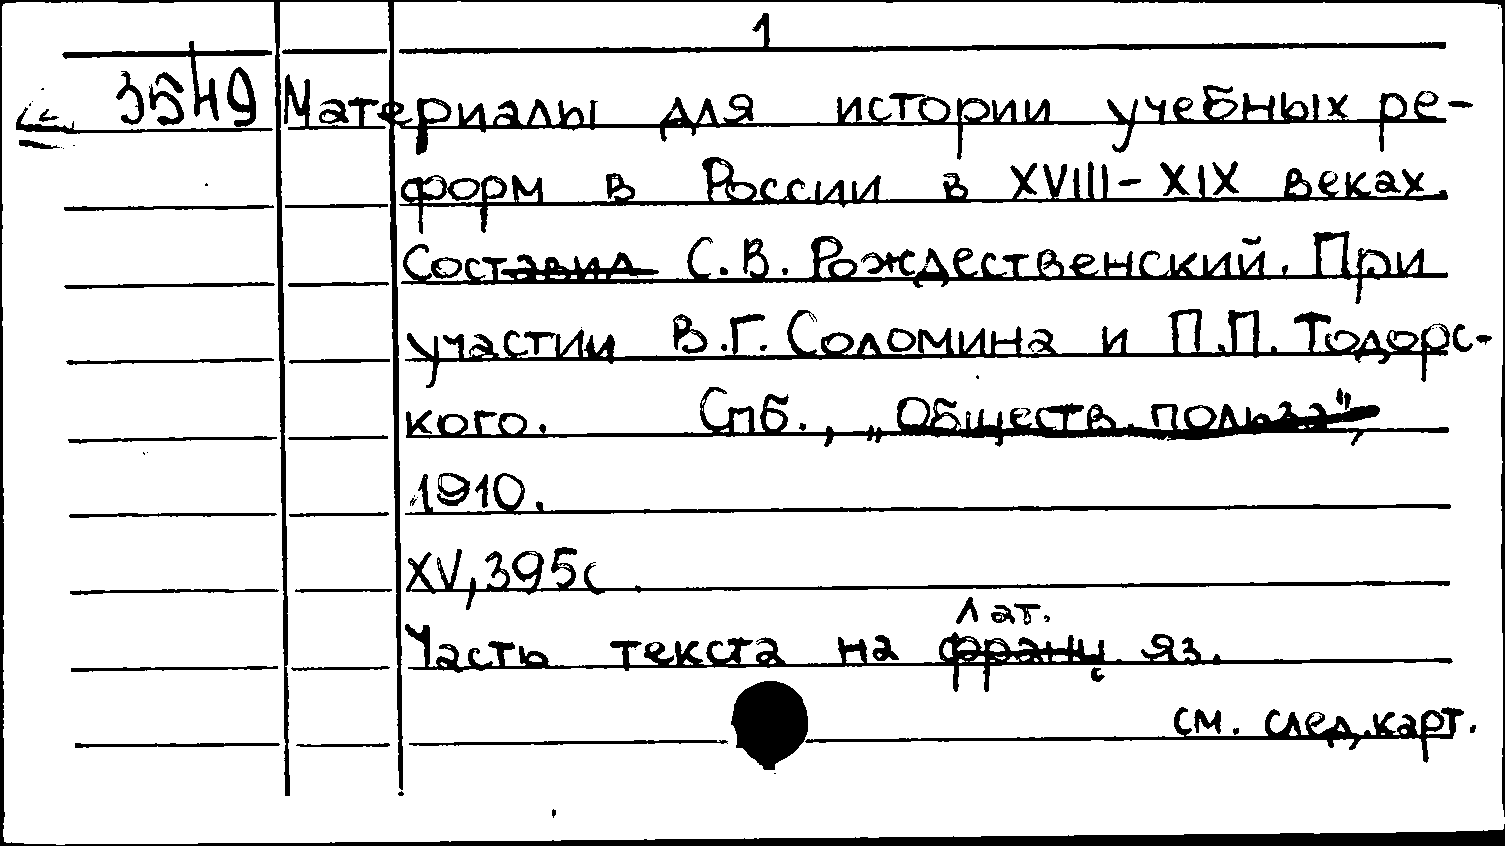 1
3549 Материалы для истории учебных ре-
форм в России в XVIII-XIX веках.
Составил С.В. Рождественский. При
участии В.Г. Соломина и П.П. Тодорс-
кого. Спб., „Обществ. польза",
1910.
XV, 395с.
лат.
Часть текста на франц. яз.
см. след. карт.